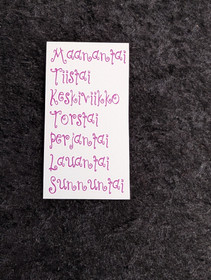 Maanantai
Tiistai
Keskiviikko
Torstai
Perjantai
Lauantai
Sunnuntai